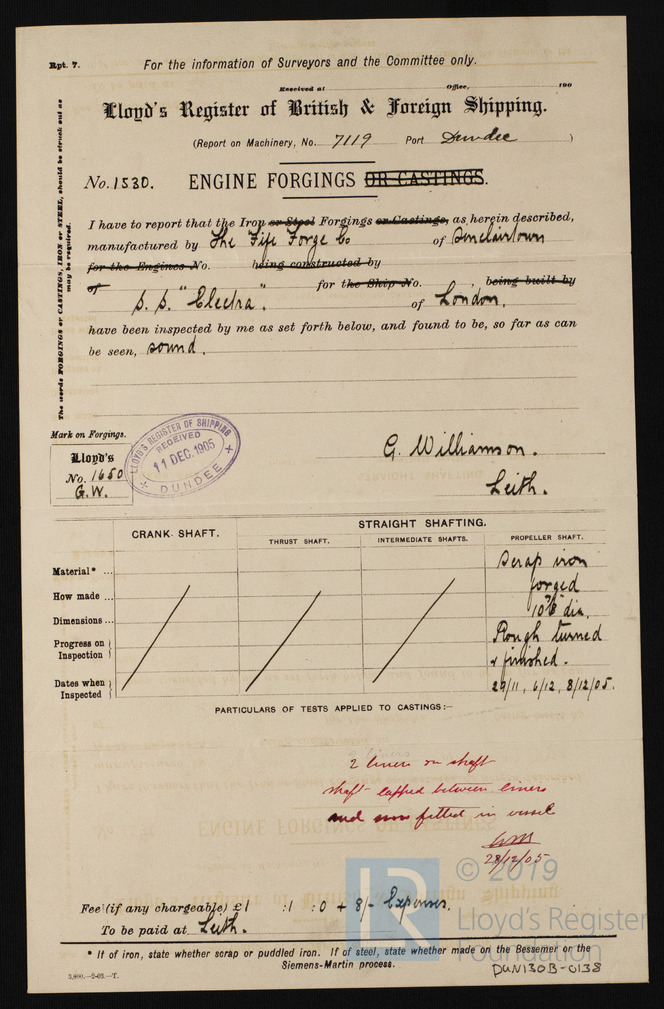 Rpt. 7.
For the information of Surveyors and the Committee only.
Received at Office, 190
Lloyd's Register of British & Foreign Shipping.
(Report on Machinery, No. 7119 Port Dundee )
No. 1530. ENGINE FORGINGS OR CASTINGS.
The words FORGINGS or CASTINGS, IRON or STEEL, should be struck out as may be required.
I have to report that the Iron or Steel Forgings or Castings, as herein described,
manufactured by The Fife Forge Co of Sinclairtown
for the Engines No. being constructed by
of for the Ship No. , being built by
S.S. "Electra". of London,
have been inspected by me as set forth below, and found to be, so far as can
be seen, sound.
Mark on Forgings.
Lloyd's
No. 1650
G.W.
LLOYD'S REGISTER OF SHIPPING
RECEIVED
11 DEC. 1905
DUNDEE
G. Williamson.
Leith.
CRANK SHAFT. STRAIGHT SHAFTING.
THRUST SHAFT. INTERMEDIATE SHAFTS. PROPELLER SHAFT.
Material* ... Scrap iron
How made ... forged
Dimensions ... dia.
Progress on Inspection Rough turned
& finished.
Dates when Inspected 29/11, 6/12, 8/12/05.
PARTICULARS OF TESTS APPLIED TO CASTINGS:—
2 liners on shaft
shaft lapped between liners
and now fitted in vessel
28/12/05
Fee (if any chargeable) £1 :1 :0 + 8/- Expenses.
To be paid at Leith.
* If of iron, state whether scrap or puddled iron. If of steel, state whether made on the Bessemer or the
Siemens-Martin process.
3,000.—2-03.—T.
DUN130B-0138
LR
© 2019
Lloyd's Register
Foundation